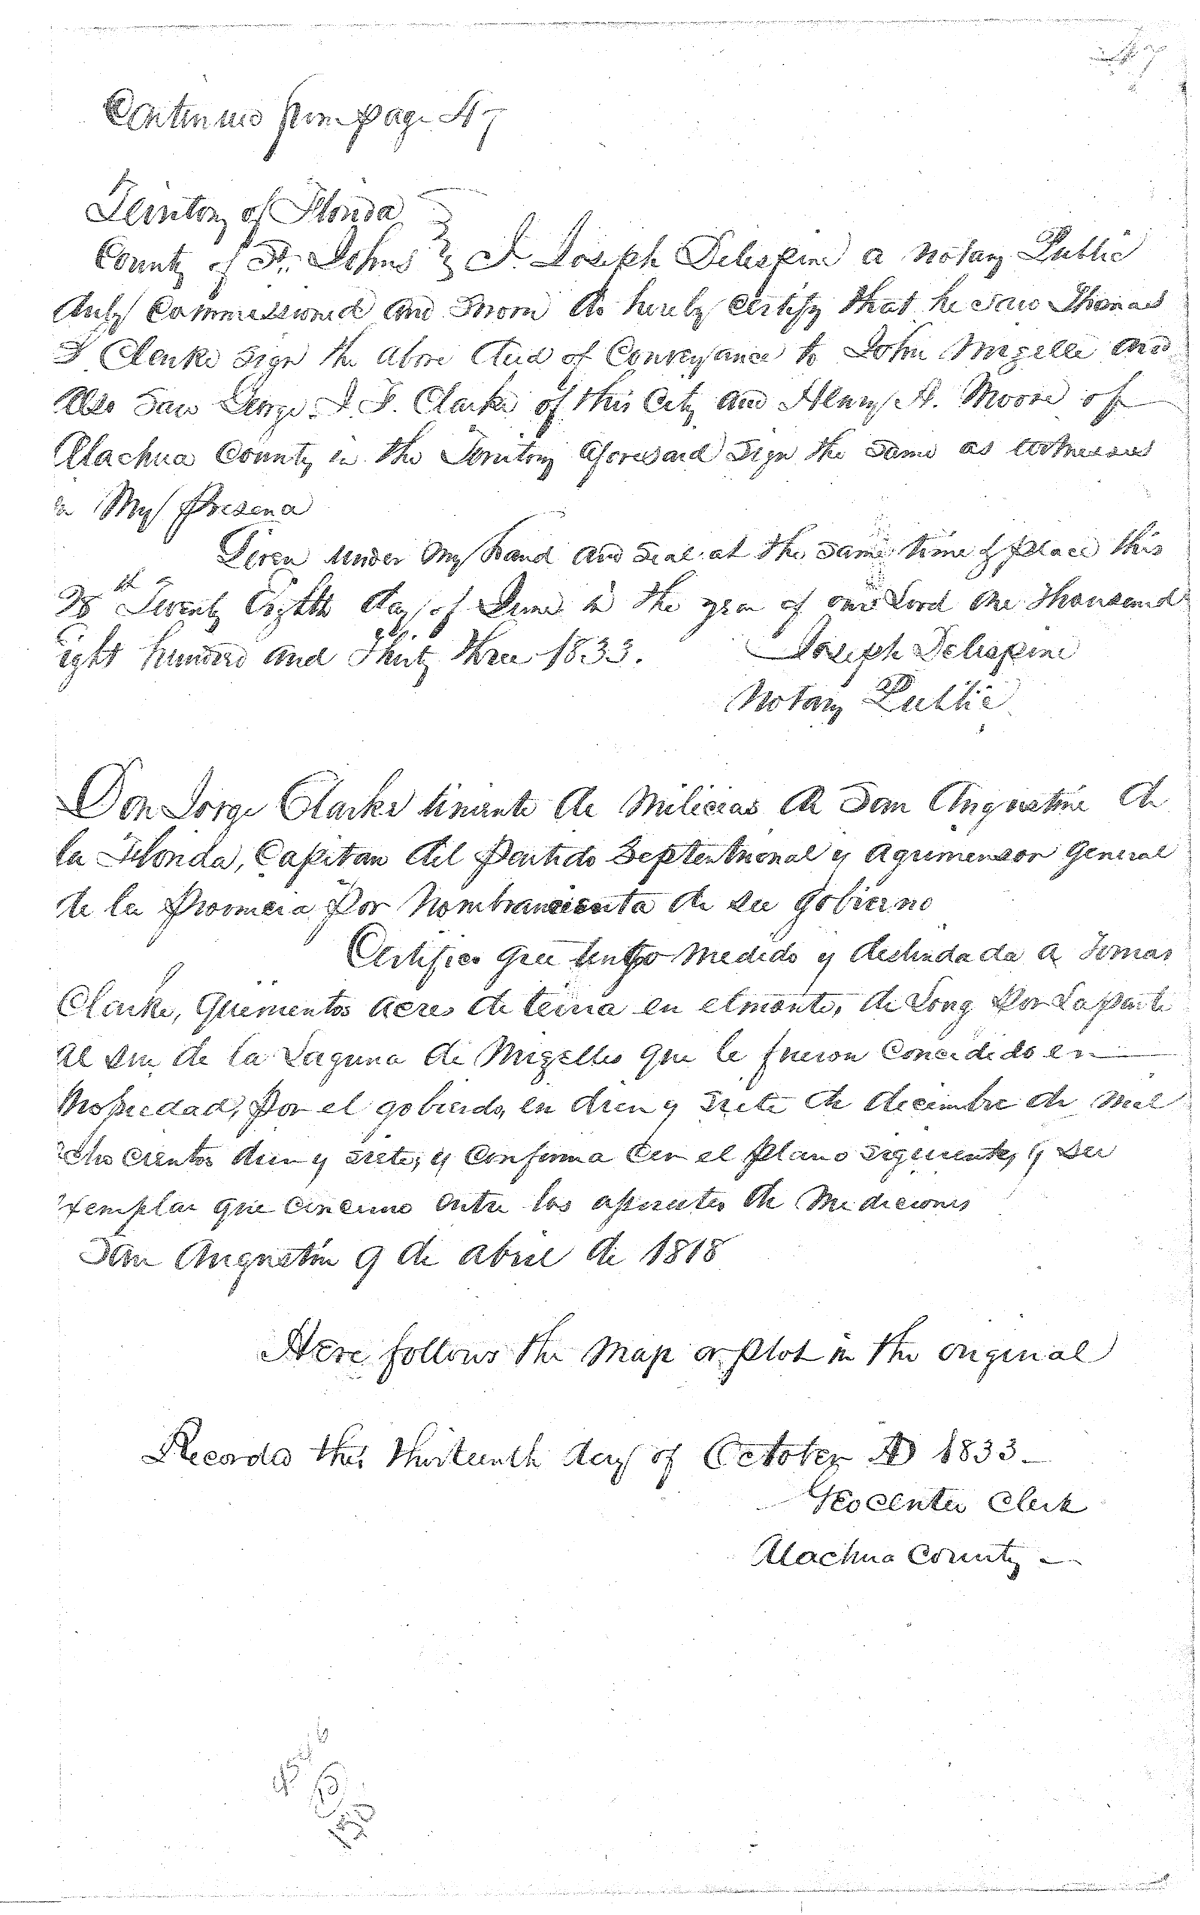 47
Continued from page 47
Territory of Florida
County of St. Johns } I. Joseph Delespine a Notary Public
duly Commissioned and Sworn do hereby Certify that he saw Thomas
F. Clarke sign the above deed of Conveyance to John Mizelle and
also saw George I. F. Clarke of this City and Henry A. Moore of
Alachua County in the Territory aforesaid sign the same as witnesses
in My presence
Given under My hand and seal at the same time & place this
28th Twenty Eighth day of June in the year of our Lord one thousand
Eight hundred and Thirty three 1833. Joseph Delespine
Notary Public
Don Jorge Clarke tiniente de Milicias de San Angustine de
la Florida, Capitan del Partido Septentrional y agrimensor General
de la Provincia por Nombramienta de su gobierno
Certifico que tengo medido y deslindada a Tomas
Clarke, quimentos acres de terria en elmonte, de Long por La parte
al sur de la Laguna de Mizelles que le fueron concedido en
propiedad, por el gobierdo, en dien y siete de decimbre de mil
ocho cientos dien y siete, y conforma con el plano siguiente, y su
exemplar que concimo entre los apuntes de Mediciones
San Angustin 9 de abril de 1818
Here follows the Map or plot in the original
Recorded this thirteenth day of October AD 1833
Geo Center Clerk
Alachua County